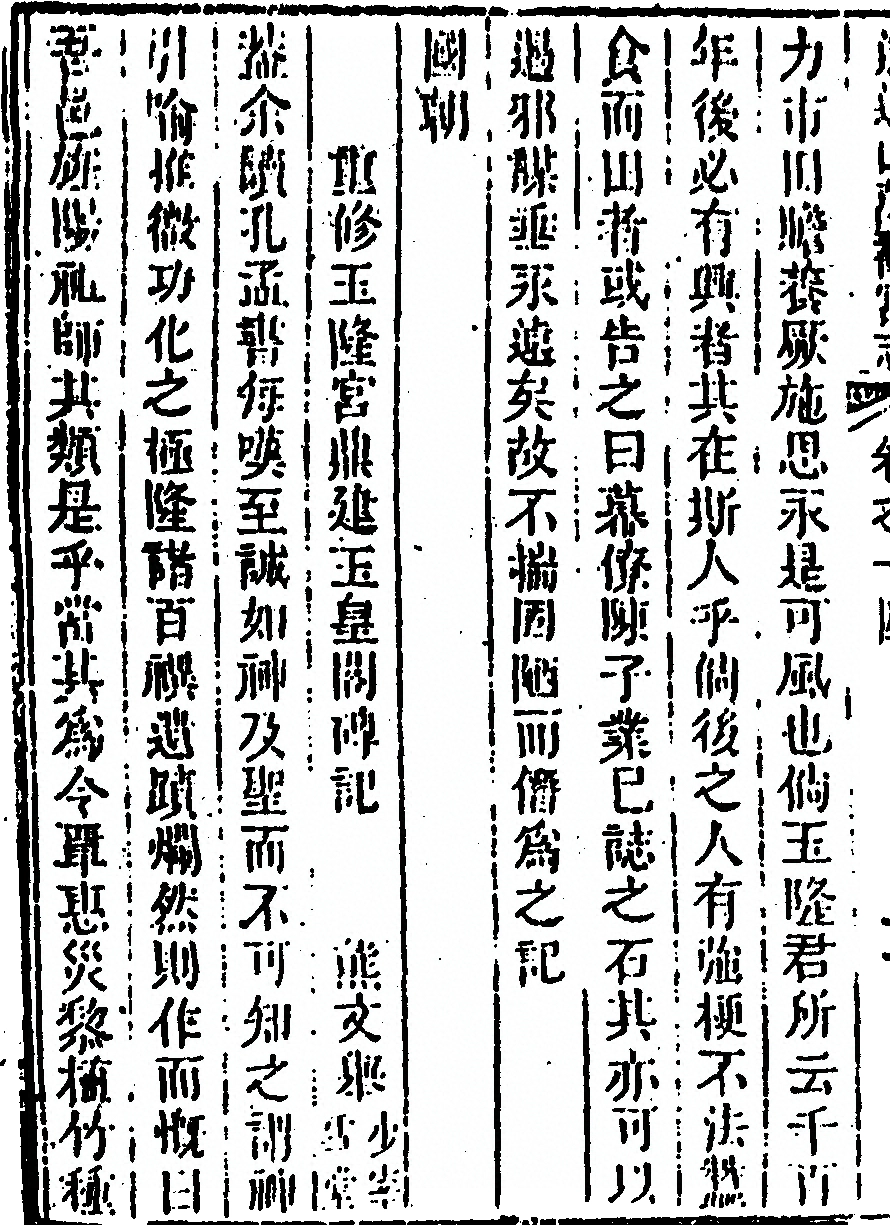 力市田贍養厥施思永是可風也倘玉隆君所云千百
年後必有興者其在斯人乎倘後之人有強梗不法蠶
食而田者或告之曰幕僚陳子業已誌之石其亦可以
遏邪謀垂永遠矣故不揣固陋而僭為之記
國朝
重修玉隆宮鼎建玉皇閣碑記 熊文舉
余讀孔孟書每嘆至誠如神及聖而不可知之謂神
引喻推微功化之極隆諸百禩遺蹟爛然則作而慨曰
吾邑旌陽祖師其類是乎當其為令單惠災黎植竹種